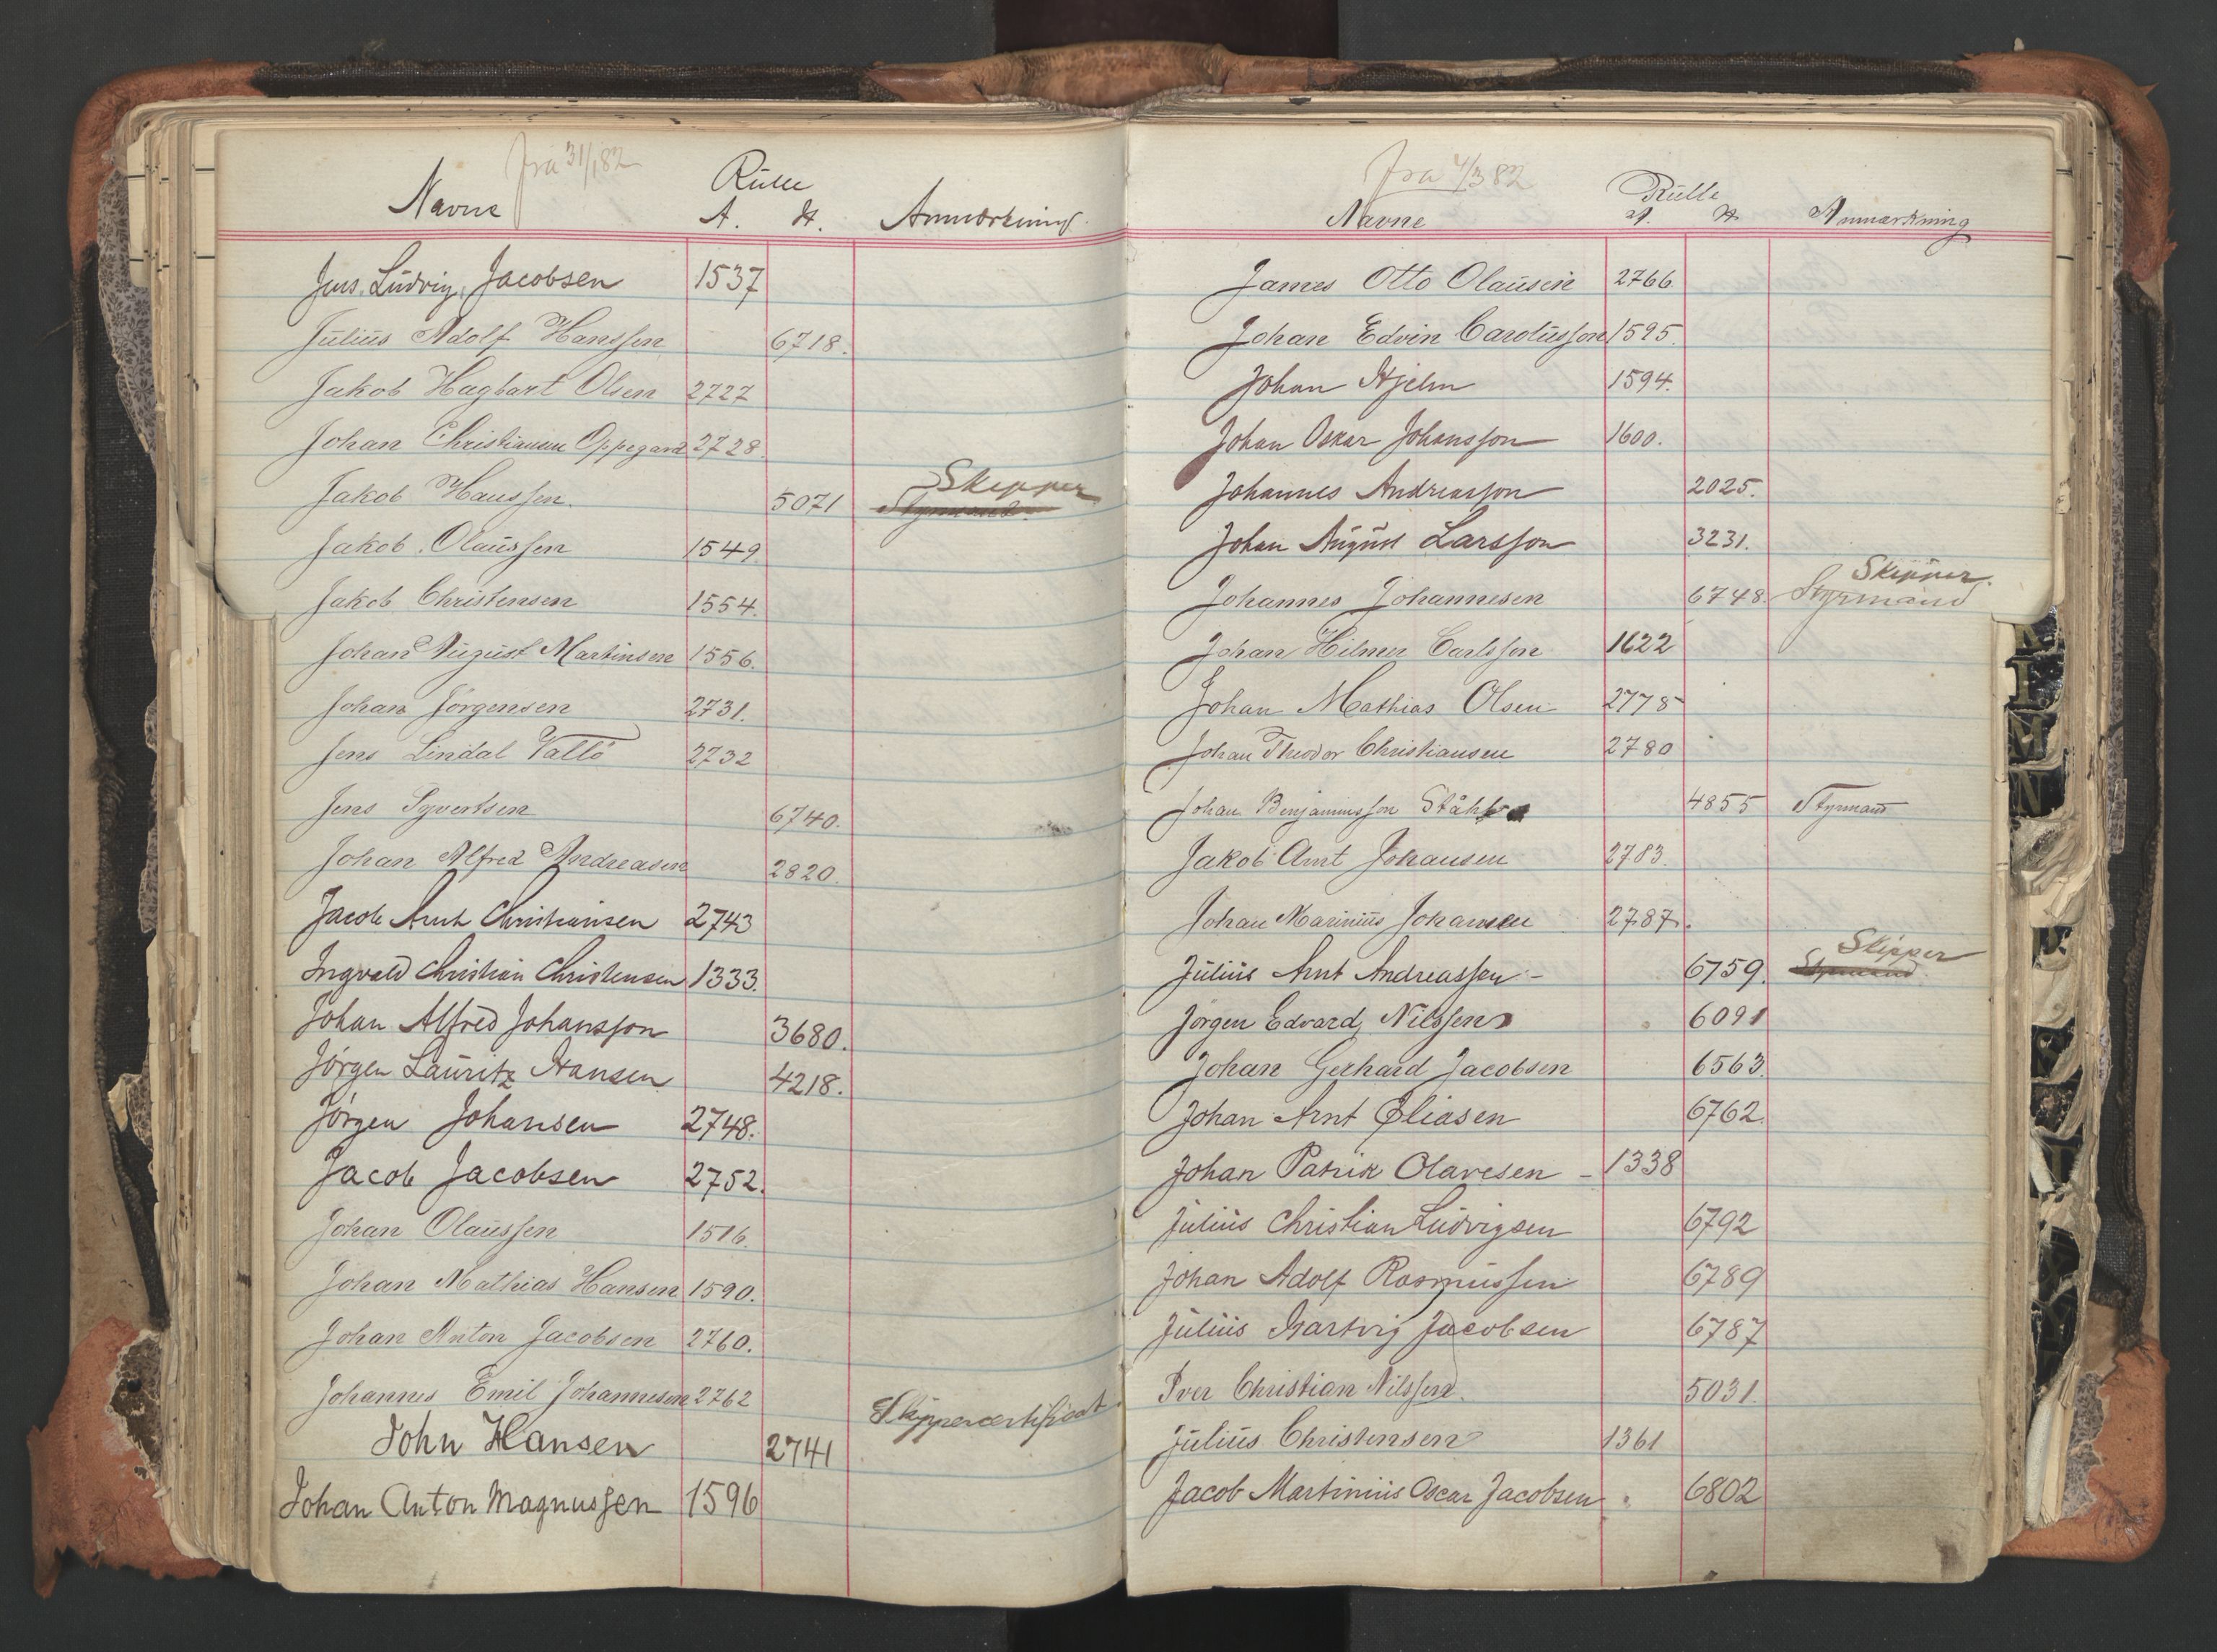 fra 31/1 82
Rulle
Navne A. H. Anmærkning
Jens Ludvig Jacobsen 1537
Julius Adolf Hanssen 6718.
Jakob Hagbart Olsen 2727
Johan Christiansen Oppegard 2728.
Skipper
Jakob Hanssen. 5071 Styrmand.
Jakob Olaussen 1549.
Jakob Christensen 1554.
Johan August Martinsen 1556.
Johan Jörgensen 2731.
Jens Lindal Vallö 2732
Jens Syvertsen 6740.
Johan Alfred Andreasen 2820.
Jacob Arnt Christiansen 2743
Ingvald Christian Christensen 1333.
Johan Alfred Johansson 3680.
Jörgen Lauritz Hansen 4218.
Jörgen Johansen 2748.
Jacob Jacobsen 2752.
Johan Olaussen 1516.
Johan Mathias Hansen 1590.
Johan Anton Jacobsen 2760.
Johannes Emil Johannesen 2762
Skippercertificat
John Hansen 2741
Johan Anton Magnussen 1596
fra 4/3 82
Rulle
Navne A. H. Anmærkning
James Otto Olausen 2766.
Johan Edvin Carolusson 1595.
Johan Hjelm 1594.
Johan Oskar Johansson 1600.
Johannes Andreasson 2025.
Johan August Larsson 3231.
Skipper.
Johannes Johannesen 6748. Styrmand
Johan Hilmer Carlsson 1622
Johan Mathias Olsen 2778
Johan Theodor Christiansen 2780
Johan Benjaminsson Ståhl 4855 Styrmand
Jakob Arnt Johansen 2783.
Johan Marinius Johansen 2787.
Skipper
Julius Arnt Andreassen - 6759. Styrmand
Jörgen Edvard Nilssen 6091
Johan Gerhard Jacobsen 6563.
Johan Arnt Eliasen 6762.
Johan Patrik Olavesen - 1338
Julius Christian Ludvigsen 6792
Johan Adolf Rasmussen 6789
Julius Hartvig Jacobsen 6787
Iver Christian Nilssen. 5031.
Julius Christensen 1361
Jacob Martinius Oscar Jacobsen 6802